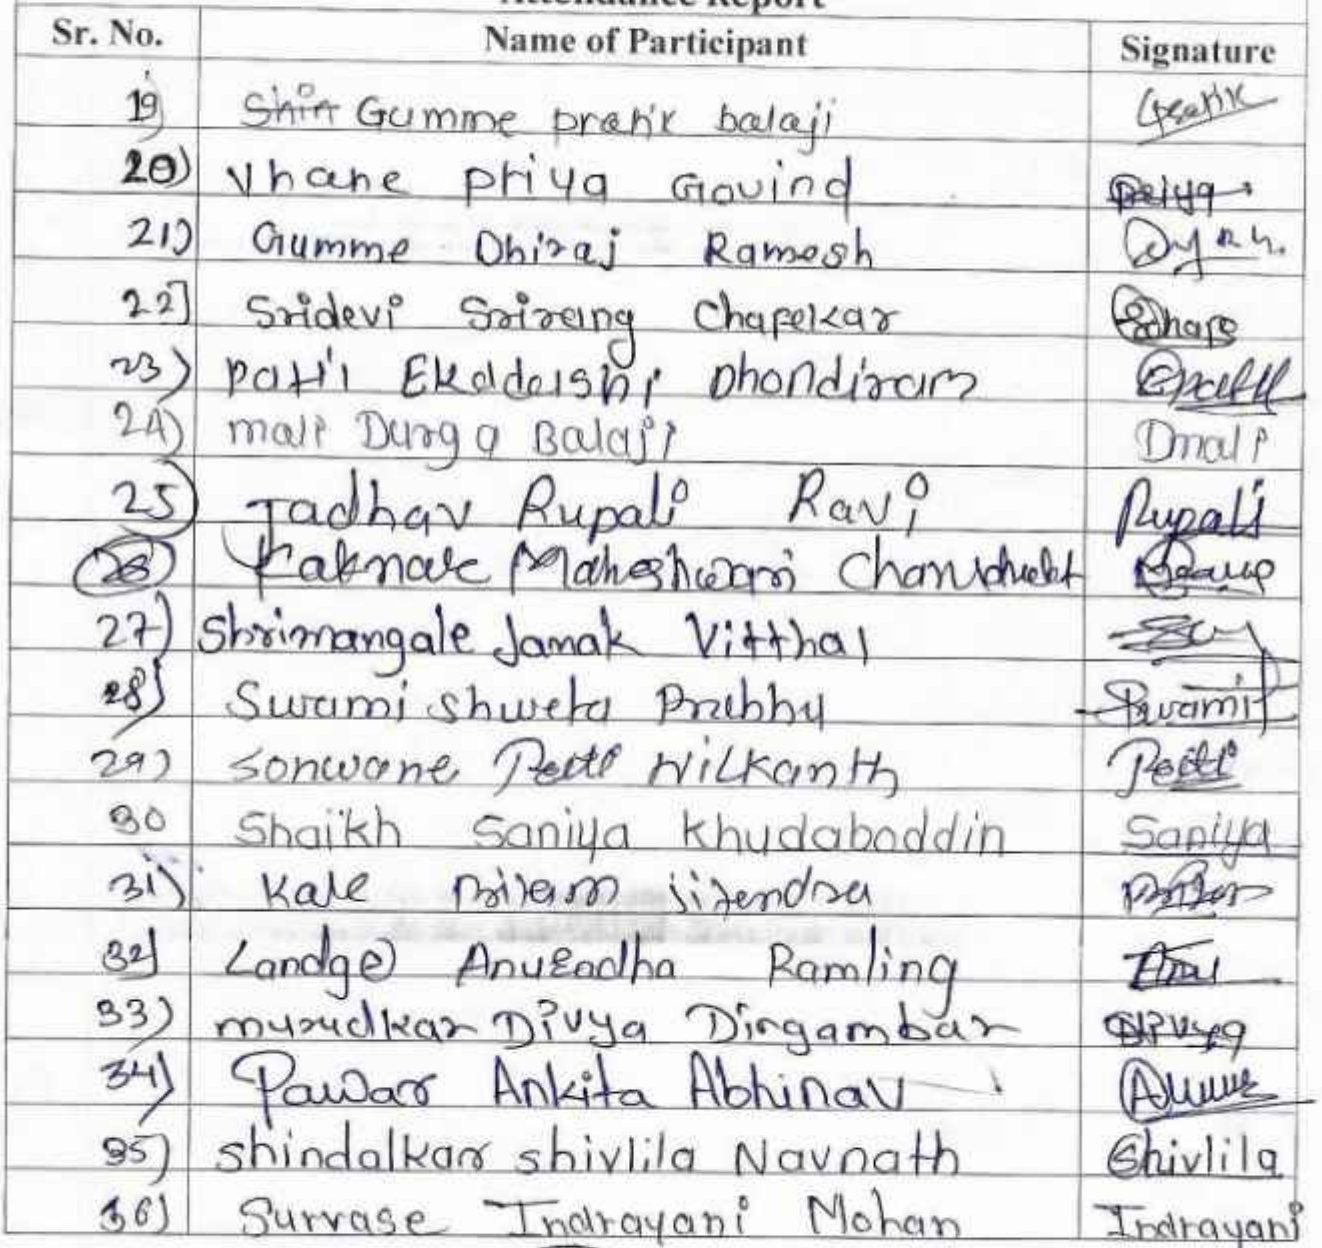 Attendance Report
Sr. No. Name of Participant Signature
19) Shin Gumme pratik balaji Pratik
20) Vhane priya Govind Priya
21) Gumme Dhiraj Ramesh
22] Sridevi Srirang Chapekar
23) Patil Ekadashi Dhondiram
24) mali Durga Balaji Dmali
25) Jadhav Rupali Ravi Rupali
26) Maheshwari
27) Shrimangale Janak Vitthal
28) Swami shweta Prabhu Swami
29) sonwane Nilkanth
30 Shaikh Saniya Khudaboddin Saniya
31) Kale Pritam jitendra
32) Landge Anuradha Ramling
33) murudkar Divya Dingambar Divya
34) Pawar Ankita Abhinav
35) shindalkar shivlila Navnath Shivlila
36) Survase Indrayani Mohan Indrayani